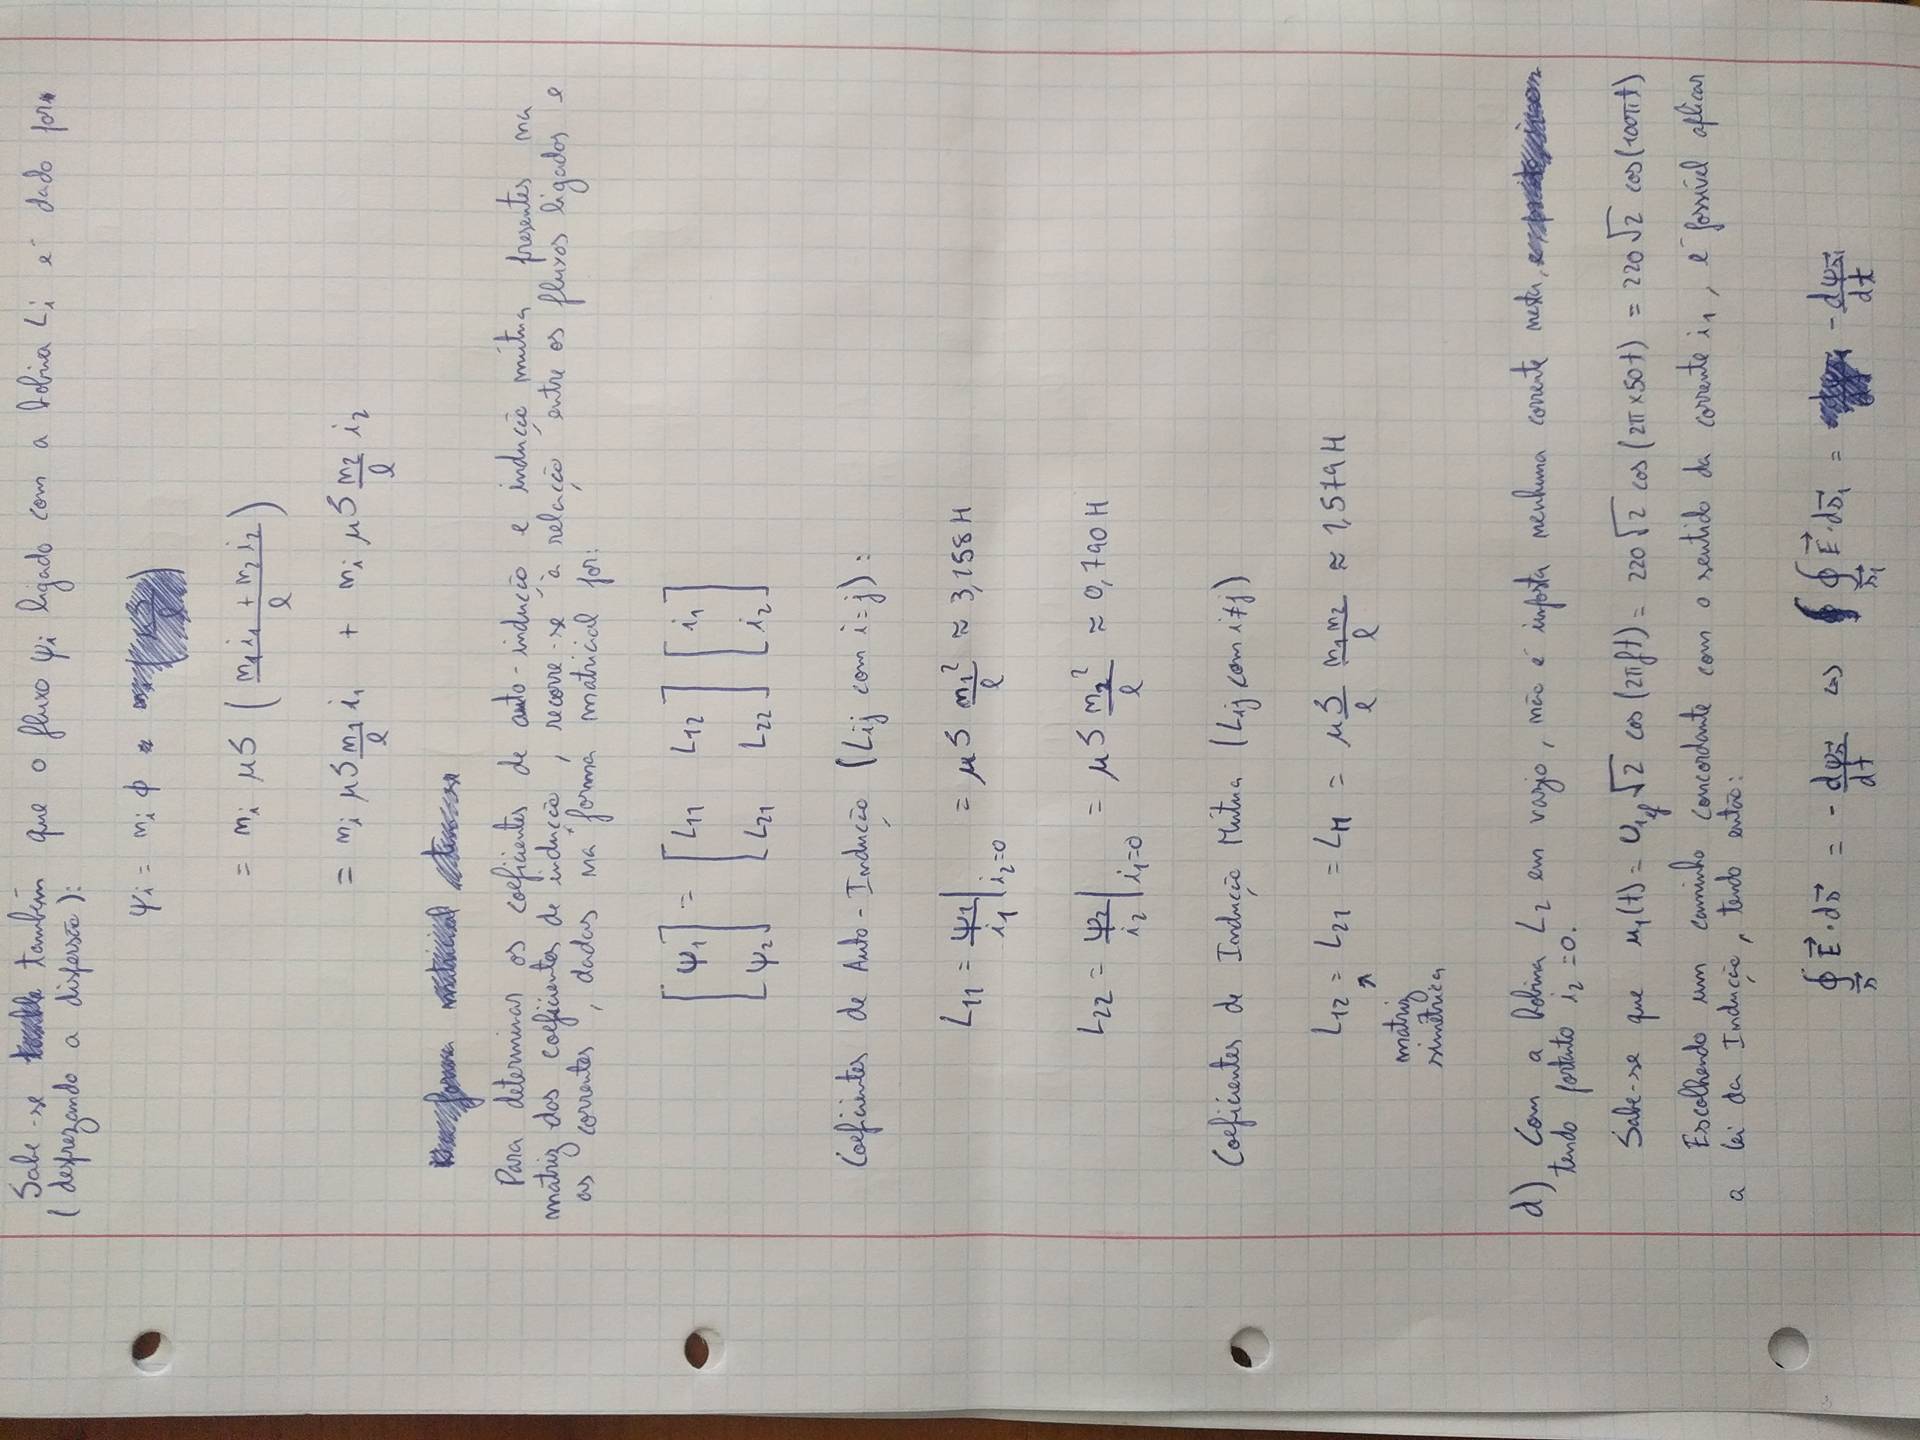 Sabe-se também que o fluxo ψi ligado com a bobina Li é dado por
(desprezando a dispersão):
ψi = ni ϕ
= ni μS ( n1 i1 + n2 i2 / l )
= ni μS n1/l i1 + ni μS n2/l i2
Para determinar os coeficientes de auto-indução e indução mútua presentes na
matriz dos coeficientes de indução, recorre-se à relação entre os fluxos ligados e
as correntes, dadas na forma matricial por:
[ψ1] = [L11 L12] [i1]
[ψ2] [L21 L22] [i2]
Coeficientes de Auto-Indução (Lij com i=j):
L11 = ψ1/i1 | i2=0 = μS n1²/l ≈ 3,158 H
L22 = ψ2/i2 | i1=0 = μS n2²/l ≈ 0,790 H
Coeficientes de Indução Mútua (Lij com i≠j)
L12 = L21 = LM = μS/l n1 n2 / l ≈ 1,579 H
↗
matriz
simétrica
d) Com a bobina L2 em vazio, não é imposta nenhuma corrente nesta,
tendo portanto i2=0.
Sabe-se que u1(t) = U1ef √2 cos(2πft) = 220√2 cos(2π×50t) = 220√2 cos(100πt)
Escolhendo um caminho concordante com o sentido da corrente i1, é possível aplicar
a lei da Indução, tendo então:
∮s⃗ E⃗·ds⃗ = - dψs⃗/dt ⇔ ∮s⃗1 E⃗·ds⃗1 = - dψs⃗1/dt